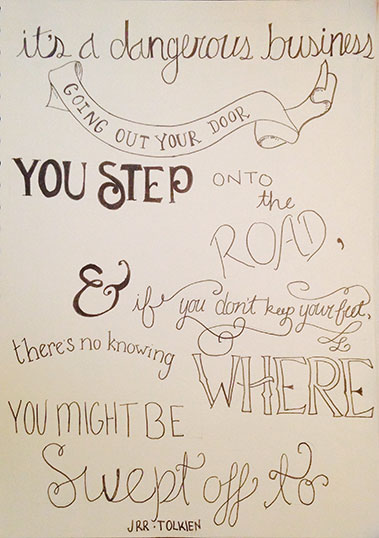 it's a dangerous business
GOING OUT YOUR DOOR
YOU STEP ONTO
the
ROAD,
& if you don't keep your feet,
there's no knowing
WHERE
YOU MIGHT BE
Swept off to
JRR • TOLKIEN